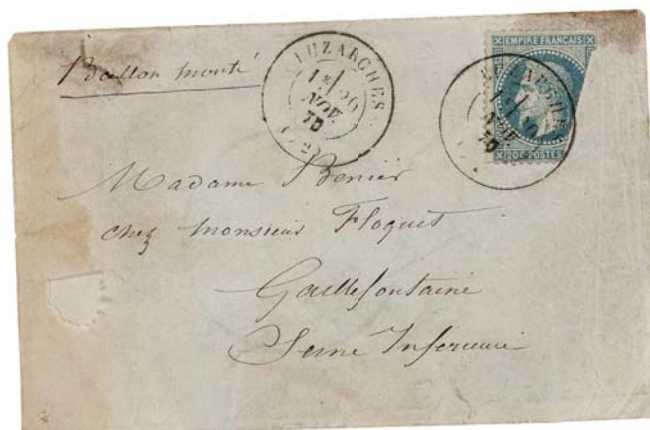 Ballon monté
LUZARCHES
1E/
NOV.
70
LUZARCHES
NOV.
70
EMPIRE FRANÇAIS
20C POSTES
Madame Benier
chez Monsieur Floquet
Gaillefontaine
Seine Inferieure